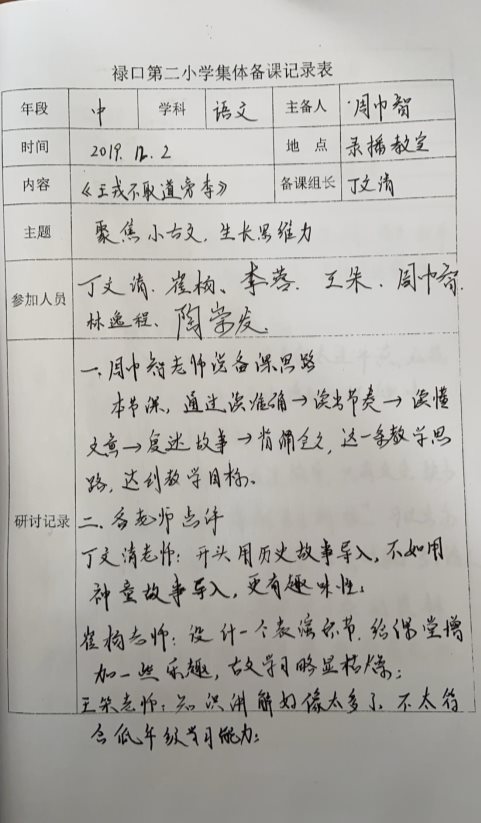 禄口第二小学集体备课记录表
年段 中 学科 语文 主备人 周巾智
时间 2019.12.2 地点 录播教室
内容 《王戎不取道旁李》 备课组长 丁文清
主题 聚焦小古文,生长思维力
参加人员 丁文清、崔杨、李蓉、王朱、周巾智、
林逸程、陶宗友
研讨记录
一、周巾智老师说备课思路
本节课,通过读准确→读出节奏→读懂
文意→复述故事→背诵全文,这一条教学思
路,达到教学目标。
二、各老师点评
丁文清老师:开头用历史故事导入,不如用
神童故事导入,更有趣味性;
崔杨老师:设计一个表演环节,给课堂增
加一些乐趣,古文学习略显枯燥;
王朱老师:知识讲解好像太多了,不太符
合低年级学习能力;